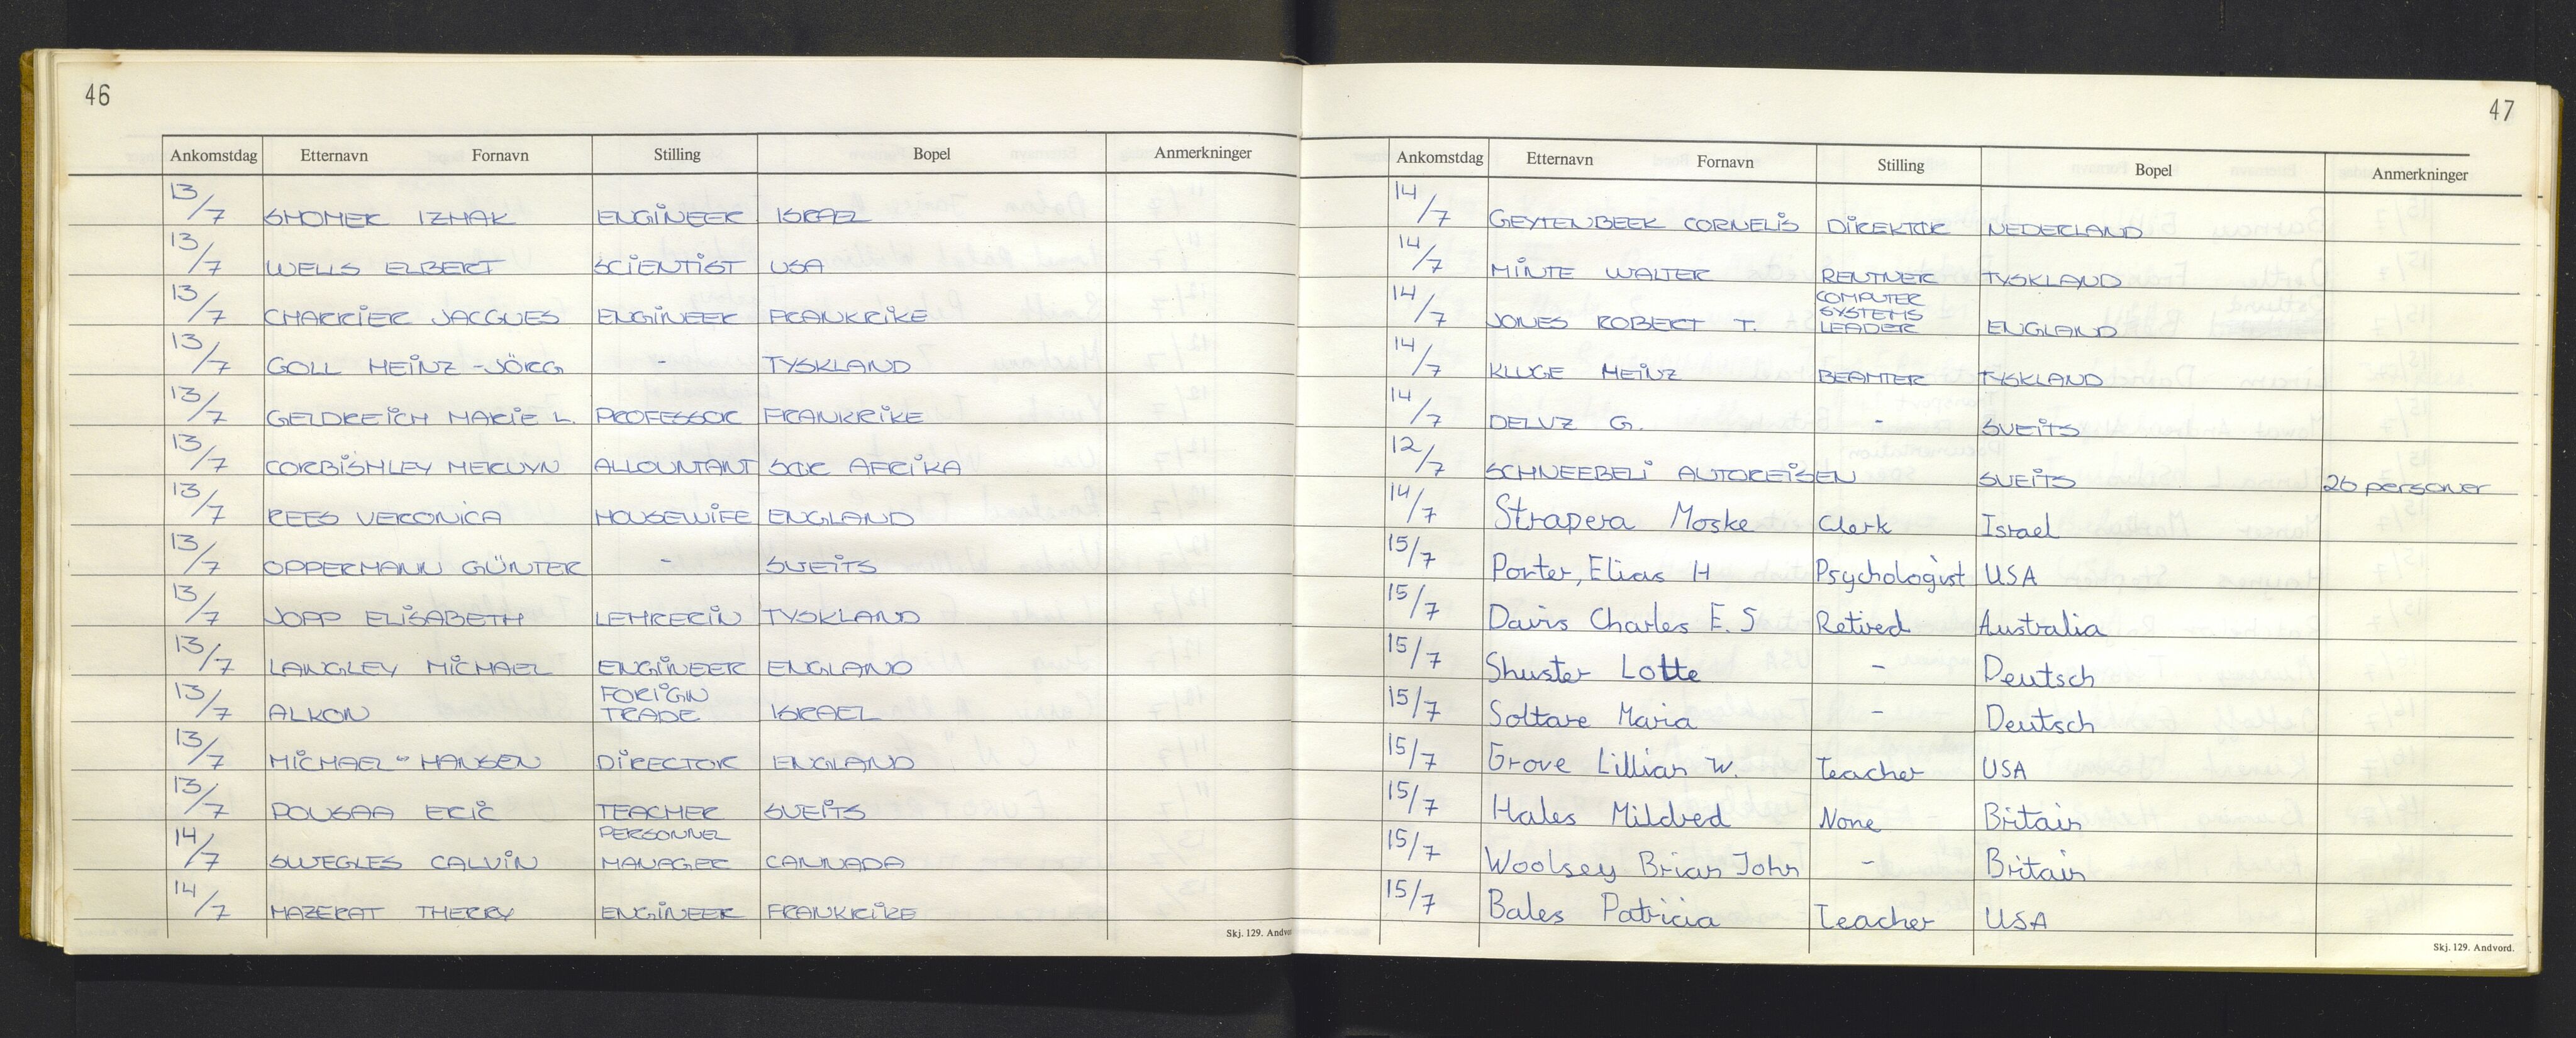 46
Ankomstdag Etternavn Fornavn Stilling Bopel Anmerkninger
13/7 SHOMER IZHAK ENGINEER ISRAEL
13/7 WELLS ELBERT SCIENTIST USA
13/7 CHARRIER JACQUES ENGINEER FRANKRIKE
13/7 GOLL HEINZ-JÖRG - TYSKLAND
13/7 GELDREICH MARIE L. PROFESSOR FRANKRIKE
13/7 CORBISHLEY MERVYN ALLOUNTANT SØR AFRIKA
13/7 REES VERONICA HOUSEWIFE ENGLAND
13/7 OPPERMANN GÜNTER - SVEITS
13/7 JOPP ELISABETH LEHRERIN TYSKLAND
13/7 LANGLEY MICHAEL ENGINEER ENGLAND
13/7 ALKON FORIGIN TRADE ISRAEL
13/7 MICHAEL-HANSEN DIRECTOR ENGLAND
13/7 POUSAA ERIC TEACHER SVEITS
14/7 SWEGLES CALVIN PERSONNEL MANAGER CANNADA
14/7 MAZERAT THERRY ENGINEER FRANKRIKE
Skj. 129. Andvo
47
Ankomstdag Etternavn Fornavn Stilling Bopel Anmerkninger
14/7 GEYTENBEEK CORNELIS DIREKTØR NEDERLAND
14/7 MINTE WALTER RENTNER TYSKLAND
14/7 JONES ROBERT T. COMPUTER SYSTEMS LEADER ENGLAND
14/7 KLUGE HEINZ BEAMTER TYSKLAND
14/7 DELUZ G. - SVEITS
12/7 SCHNEEBELI AUTOREISEN SVEITS 26 personer
14/7 Strapera Moske Clerk Israel
15/7 Porter, Elias H Psychologist USA
15/7 Davis Charles E. S Retired Australia
15/7 Shuster Lotte - Deutsch
15/7 Soltare Maria - Deutsch
15/7 Grove Lillian W. Teacher USA
15/7 Hales Mildred None Britain
15/7 Woolsey Brian John - Britain
15/7 Bales Patricia Teacher USA
Skj. 129. Andvord.